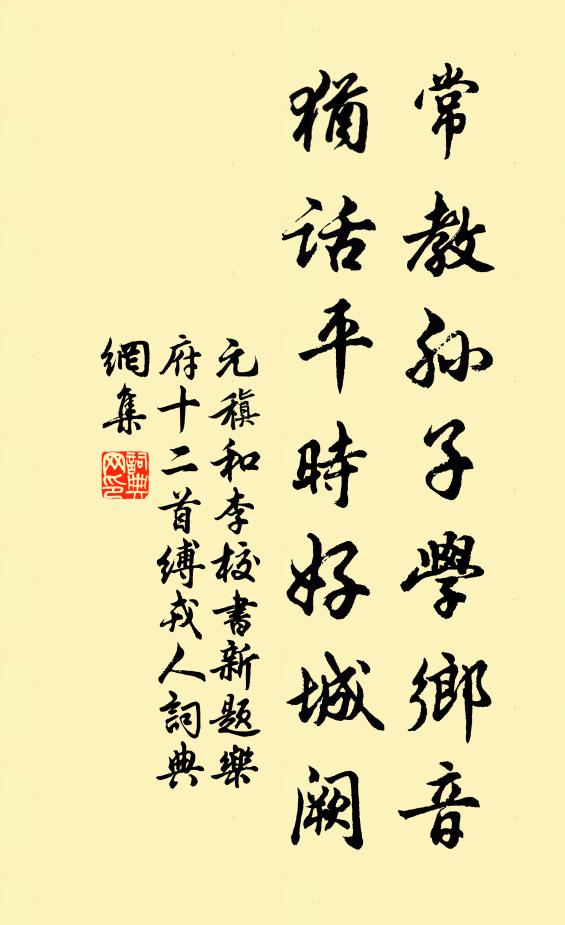 常教孙子學鄉音
猶话平時好城阙
元稹和李校書新题樂
府十二首缚戎人詞典
網集
詞典
网印